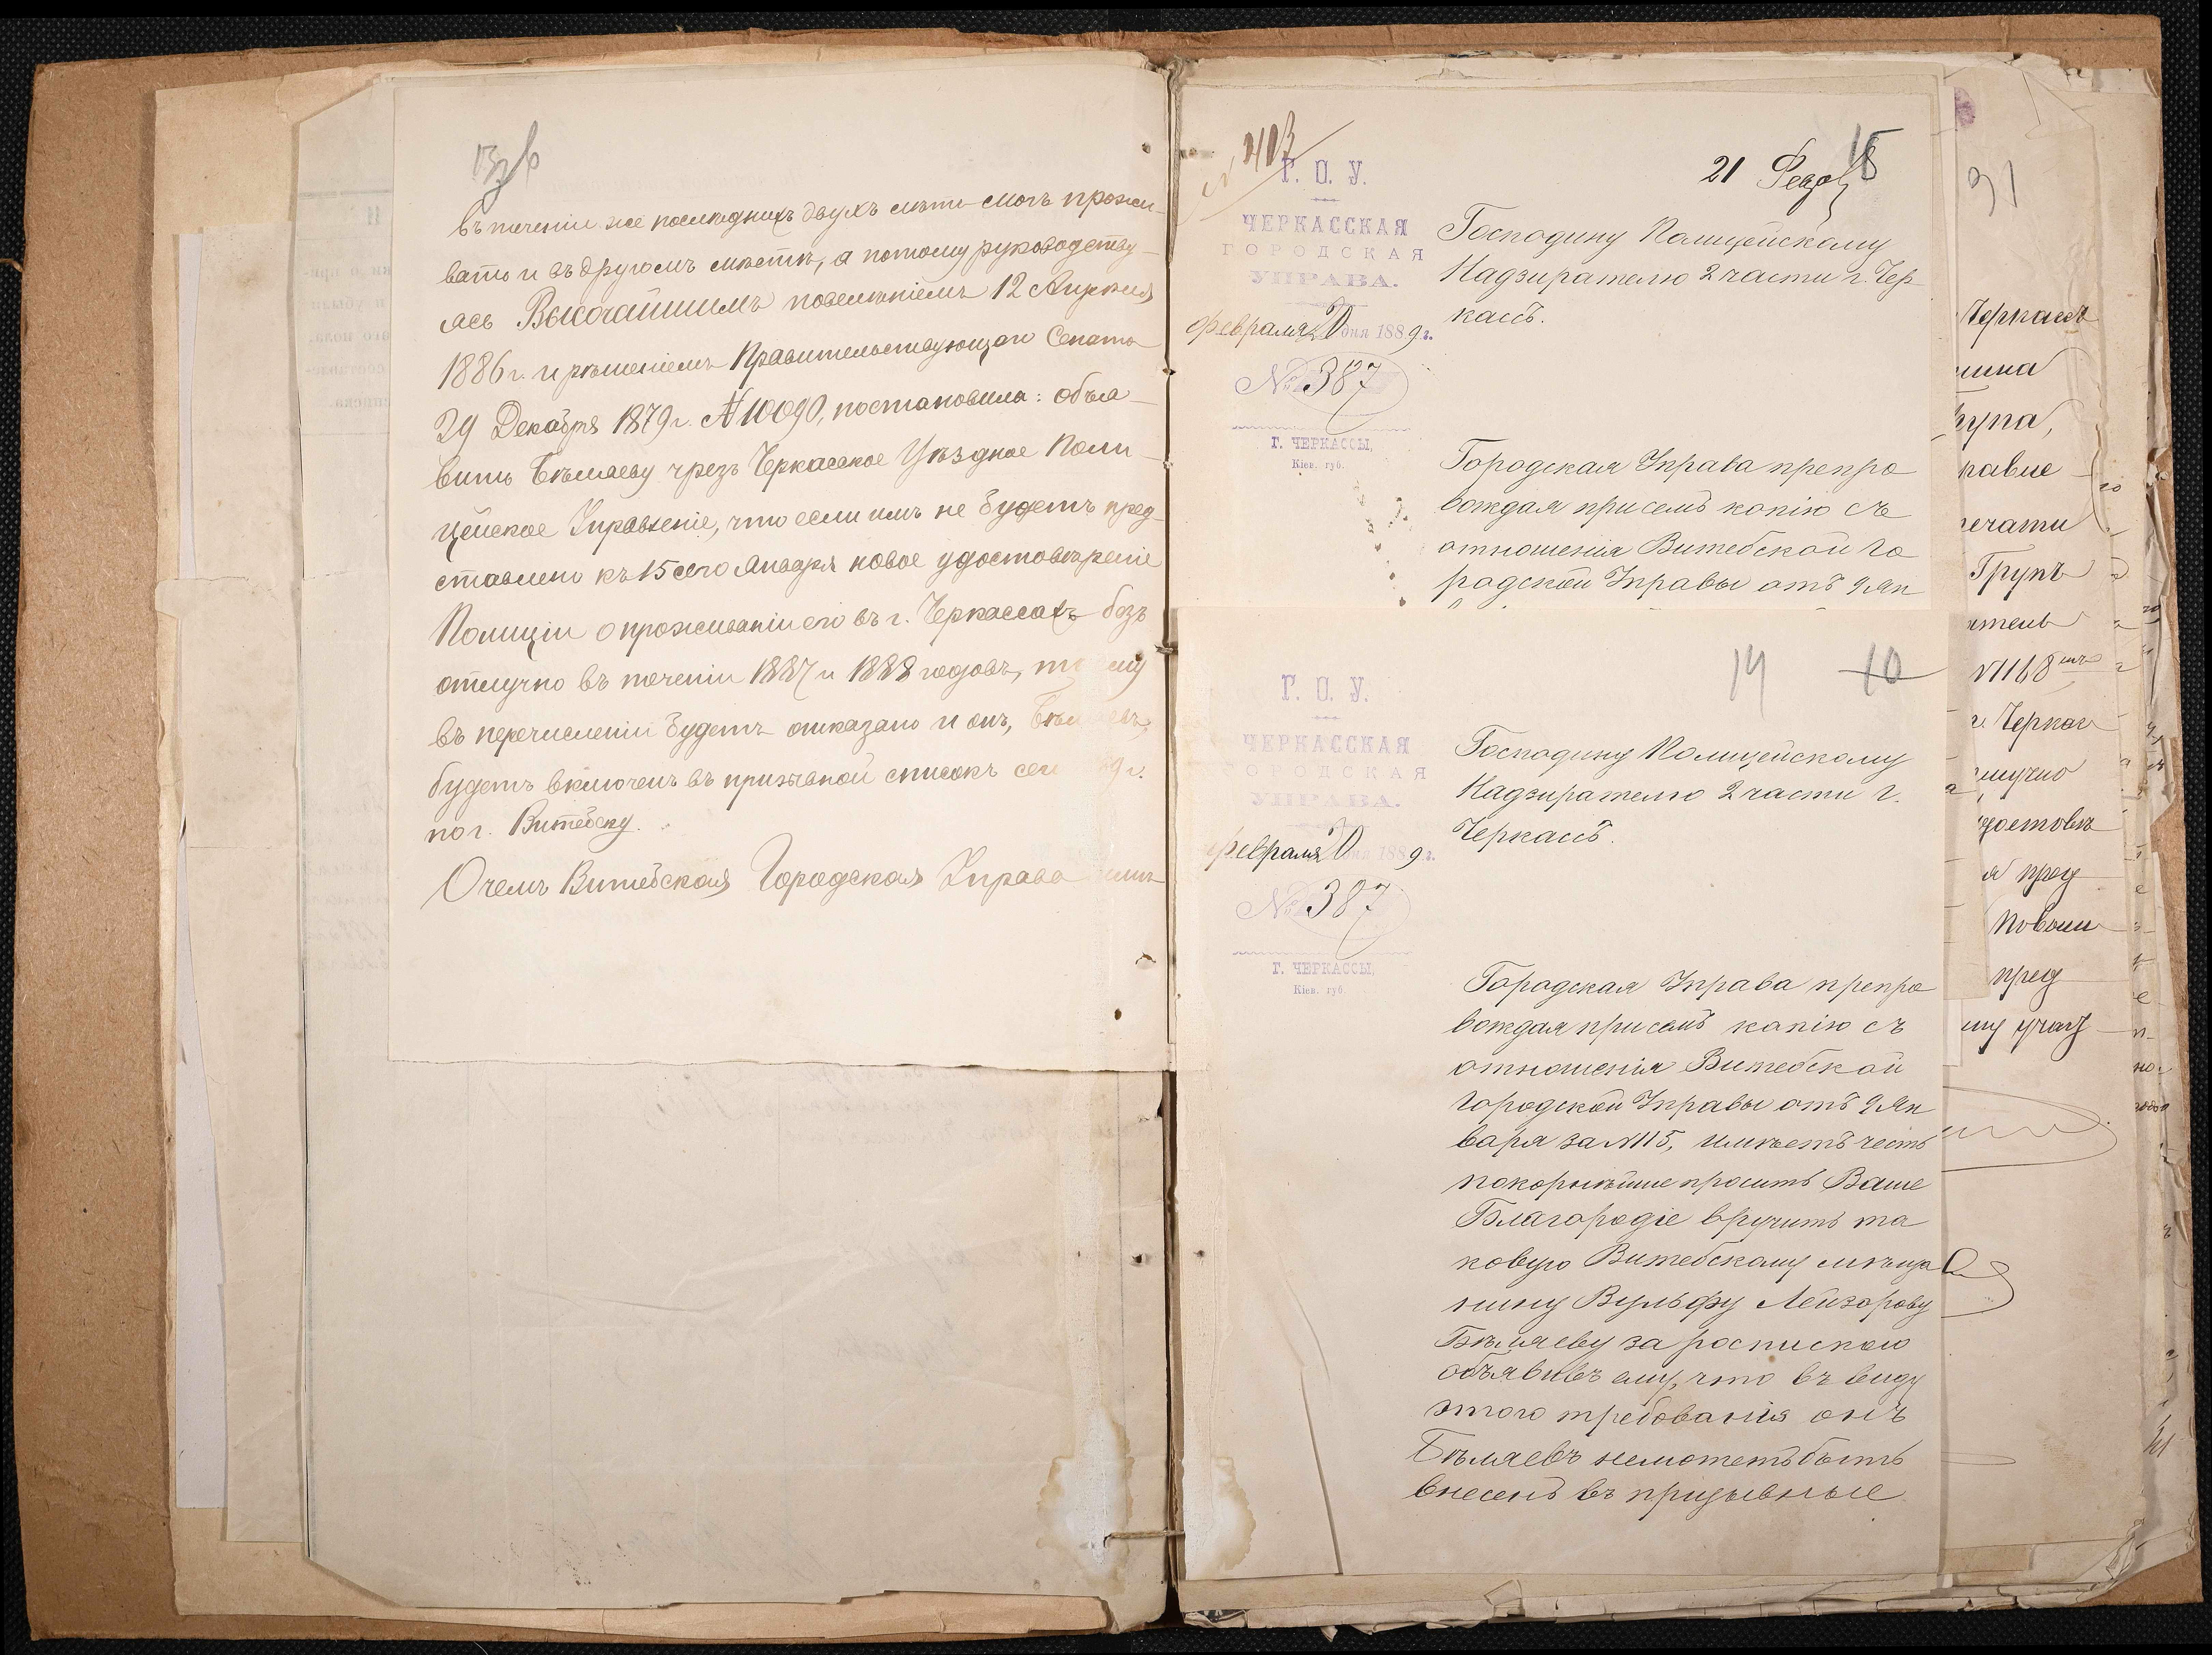 въ теченіи же последнихъ двухъ летъ могъ прожи-
вать и въ другомъ мѣстѣ, а потому руководству-
ясь Высочайшимъ повелѣніемъ 12 Апрѣля
1886 г. и рѣшеніемъ Правительствующаго Сената
29 Декабря 1879 г. № 10090, постановила: объя-
вить Бѣляеву чрезъ Черкасское Уѣздное Поли-
цейское Управленіе, что если имъ не будетъ пред-
ставлено къ 15 сего Января новое удостовѣреніе
Полиціи о проживаніи его въ г. Черкассахъ безъ
отлучно въ теченіи 1887 и 1888 годовъ, то ему
въ перечисленіи будетъ отказано и онъ, Бѣляевъ,
будетъ включенъ въ призывной списокъ сего 89 г.
по г. Витебску.
О чемъ Витебская Городская Управа
403
15
21 Февр
Г. О. У.
ЧЕРКАССКАЯ
ГОРОДСКАЯ
УПРАВА.
Февраля 20 дня 1889 г.
№ 387
Г. ЧЕРКАССЫ,
Кіев. губ.
Господину Полицейскому
Надзирателю 2 части г. Чер
кассъ.
Городская Управа препро
вождая при семъ копію съ
отношенія Витебской Го
родской Управы отъ 9 Ян
14 10
Г. О. У.
ЧЕРКАССКАЯ
ГОРОДСКАЯ
УПРАВА.
Февраля 20 дня 1889 г.
№ 387
Г. ЧЕРКАССЫ,
Кіев. губ.
Господину Полицейскому
Надзирателю 2 части г.
Черкассъ.
Городская Управа препро
вождая при семъ копію съ
отношенія Витебской
Городской Управы отъ 9 Ян
варя за № 115, имѣетъ честь
покорнѣйше просить Ваше
Благородіе вручить та
ковую Витебскому мѣща
нину Вульфу Лейзорову
Бѣляеву за роспискою
объявивъ ему, что въ виду
этого требованія онъ
Бѣляевъ неможетъ быть
внесенъ въ призывные
91
Черкассъ
щина
равле
ечати
Групъ
атель
№ 1168
г. Черкас
тлучно
удостовѣ
я пред
пред